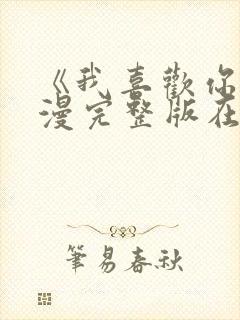 《我喜歡你
漫完整版在
筆易春秋